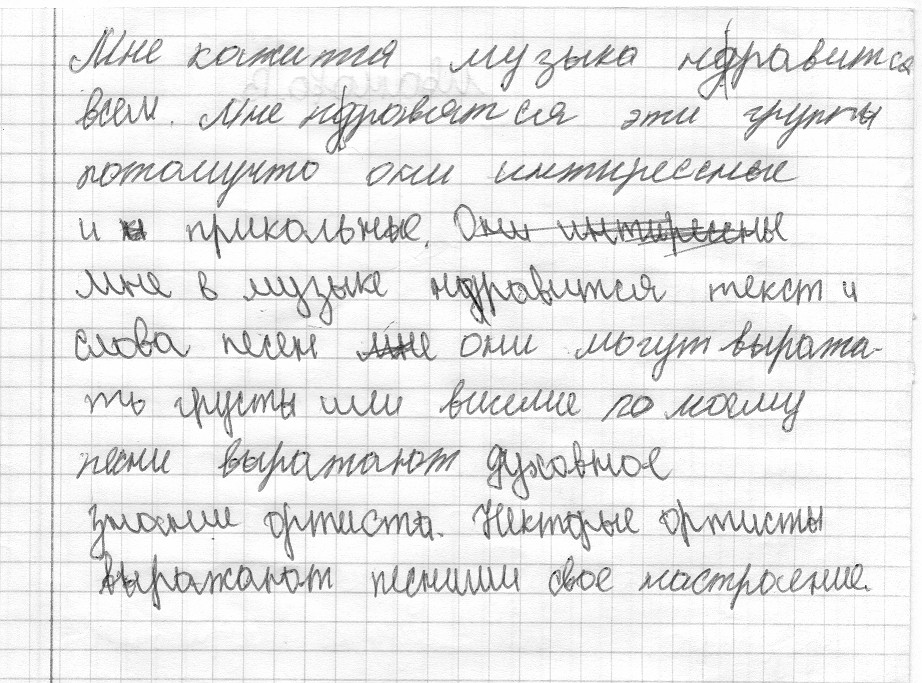 Мне кажится музыка нравитса
всем. Мне нравятся эти группы
потомучто они интирессные
и прикольные. Они интиресные
мне в музыке нравится текст и
слова песен мне они могут выража-
ть грусты или висилие по моему
песни выражают духовное
знание артиста. Некторые артисты
выражают песнями свое настроение.